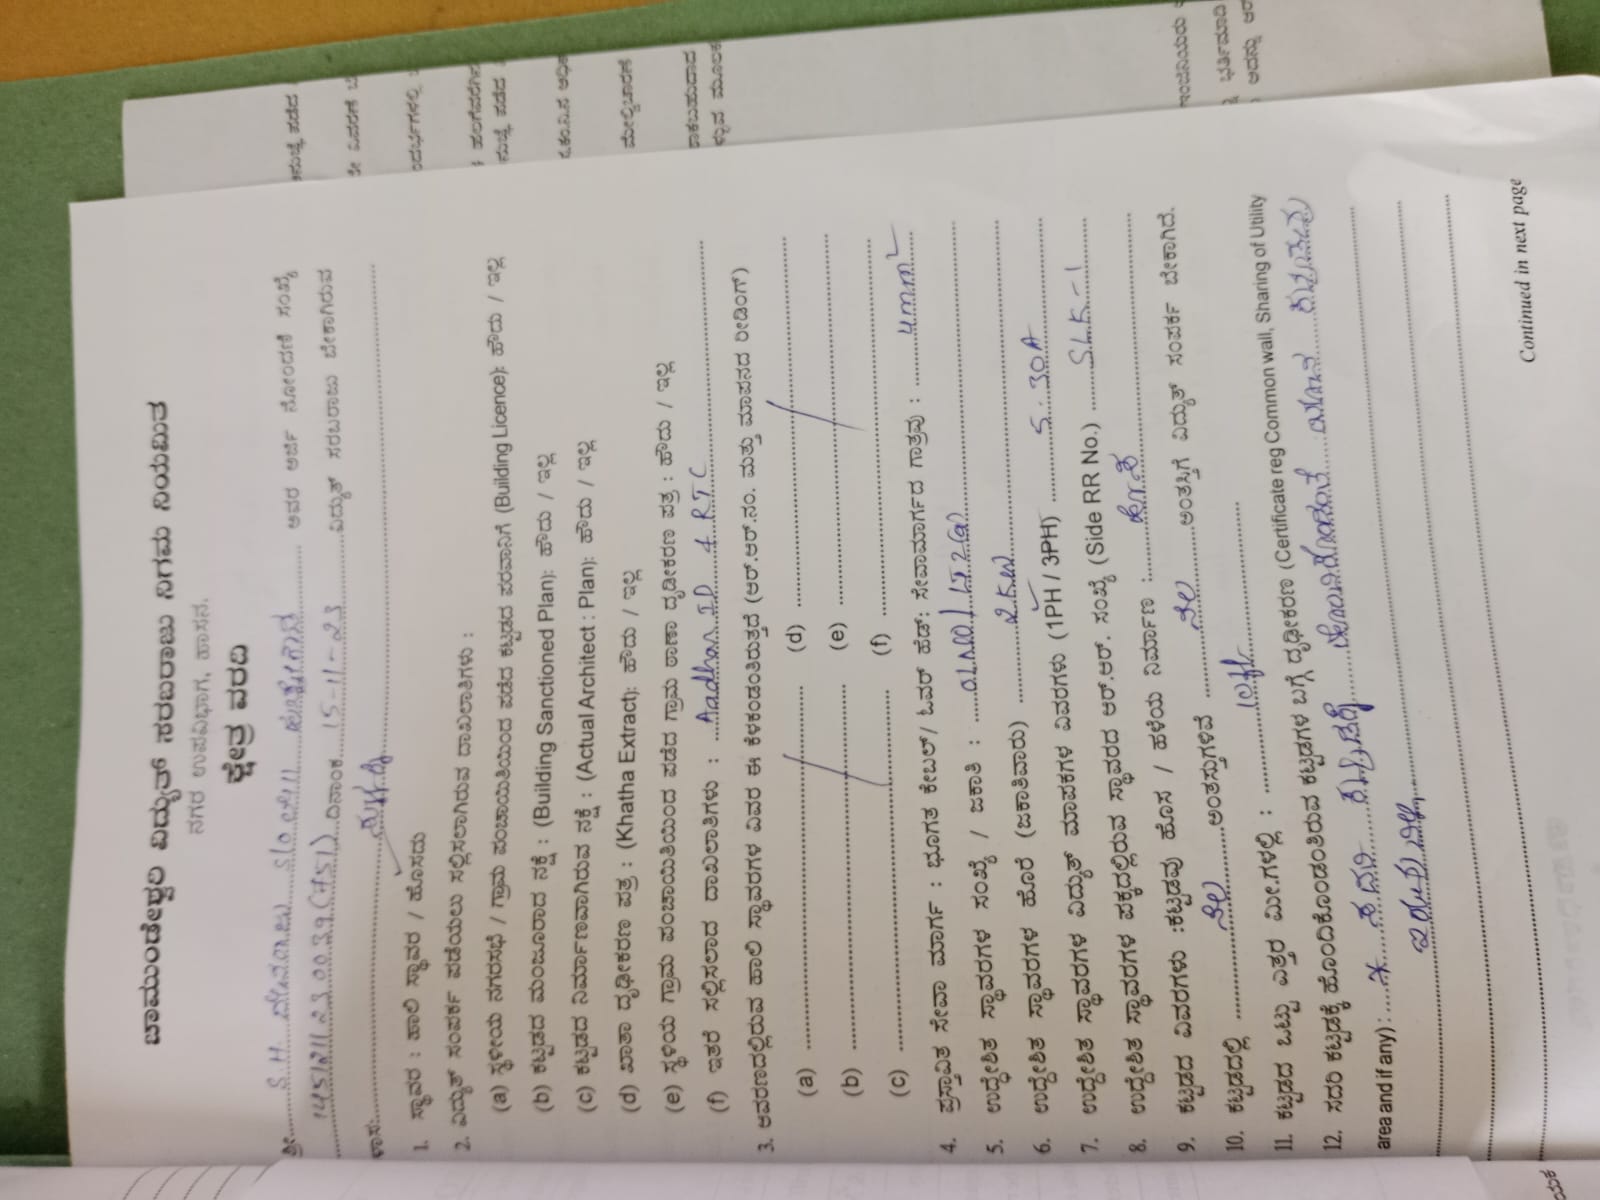 ಚಾಮುಂಡೇಶ್ವರಿ ವಿದ್ಯುತ್ ಸರಬರಾಜು ನಿಗಮ ನಿಯಮಿತ
ನಗರ ಉಪವಿಭಾಗ, ಹಾಸನ.
ಕ್ಷೇತ್ರ ವರದಿ
ಶ್ರೀ. S.H. ದೇವರಾಜು S/O ಲೇ|| ಅವರ ಅರ್ಜಿ ನೋಂದಣಿ ಸಂಖ್ಯೆ
ದಿನಾಂಕ 15-11-23 ವಿದ್ಯುತ್ ಸರಬರಾಜು ಬೇಕಾಗಿರುವ
ಸ್ಥಳ:
1. ಸ್ಥಾವರ : ಹಾಲಿ ಸ್ಥಾವರ / ಹೊಸದು
2. ವಿದ್ಯುತ್ ಸಂಪರ್ಕ ಪಡೆಯಲು ಸಲ್ಲಿಸಲಾಗಿರುವ ದಾಖಲಾತಿಗಳು :
(a) ಸ್ಥಳೀಯ ನಗರಸಭೆ / ಗ್ರಾಮ ಪಂಚಾಯಿತಿಯಿಂದ ಪಡೆದ ಕಟ್ಟಡದ ಪರವಾನಿಗೆ (Building Licence): ಹೌದು / ಇಲ್ಲ
(b) ಕಟ್ಟಡದ ಮಂಜೂರಾದ ನಕ್ಷೆ : (Building Sanctioned Plan): ಹೌದು / ಇಲ್ಲ
(c) ಕಟ್ಟಡದ ನಿರ್ಮಾಣವಾಗಿರುವ ನಕ್ಷೆ : (Actual Architect : Plan): ಹೌದು / ಇಲ್ಲ
(d) ಖಾತಾ ದೃಢೀಕರಣ ಪತ್ರ : (Khatha Extract): ಹೌದು / ಇಲ್ಲ
(e) ಸ್ಥಳಿಯ ಗ್ರಾಮ ಪಂಚಾಯಿತಿಯಿಂದ ಪಡೆದ ಗ್ರಾಮ ಠಾಣಾ ದೃಢೀಕರಣ ಪತ್ರ : ಹೌದು / ಇಲ್ಲ
(f) ಇತರೆ ಸಲ್ಲಿಸಲಾದ ದಾಖಲಾತಿಗಳು : Aadhar ID & RTC
3. ಆವರಣದಲ್ಲಿರುವ ಹಾಲಿ ಸ್ಥಾವರಗಳ ವಿವರ ಈ ಕೆಳಕಂಡಂತಿರುತ್ತದೆ (ಆರ್.ಆರ್.ನಂ. ಮತ್ತು ಮಾಪನದ ರೀಡಿಂಗ್)
(a) (d)
(b) (e)
(c) (f)
4. ಪ್ರಸ್ತಾವಿತ ಸೇವಾ ಮಾರ್ಗ : ಭೂಗತ ಕೇಬಲ್/ ಓವರ್ ಹೆಡ್: ಸೇವಾಮಾರ್ಗದ ಗಾತ್ರವು : 4mm²
5. ಉದ್ದೇಶಿತ ಸ್ಥಾವರಗಳ ಸಂಖ್ಯೆ / ಜಕಾತಿ :
6. ಉದ್ದೇಶಿತ ಸ್ಥಾವರಗಳ ಹೊರೆ (ಜಕಾತಿವಾರು) 2KW
7. ಉದ್ದೇಶಿತ ಸ್ಥಾವರಗಳ ವಿದ್ಯುತ್ ಮಾಪಕಗಳ ವಿವರಗಳು (1PH / 3PH) 5-30A
8. ಉದ್ದೇಶಿತ ಸ್ಥಾವರಗಳ ಪಕ್ಕದಲ್ಲಿರುವ ಸ್ಥಾವರದ ಆರ್.ಆರ್. ಸಂಖ್ಯೆ (Side RR No.) SLK-1
9. ಕಟ್ಟಡದ ವಿವರಗಳು :ಕಟ್ಟಡವು ಹೊಸ / ಹಳೆಯ ನಿರ್ಮಾಣ : ಹೊಸ
10. ಕಟ್ಟಡದಲ್ಲಿ ನೆಲ ಅಂತಸ್ತುಗಳಿವೆ ನೆಲ ಅಂತಸ್ತಿಗೆ ವಿದ್ಯುತ್ ಸಂಪರ್ಕ ಬೇಕಾಗಿದೆ.
11. ಕಟ್ಟಡದ ಒಟ್ಟು ಎತ್ತರ ಮೀ.ಗಳಲ್ಲಿ :
12. ಸದರಿ ಕಟ್ಟಡಕ್ಕೆ ಹೊಂದಿಕೊಂಡಂತಿರುವ ಕಟ್ಟಡಗಳ ಬಗ್ಗೆ ದೃಢೀಕರಣ (Certificate reg Common wall, Sharing of Utility
area and if any): ಸದರಿ ಕಟ್ಟಡಕ್ಕೆ ಹೊಂದಿಕೊಂಡಂತೆ ಯಾವ ಕಟ್ಟಡವೂ
ಇರುವುದಿಲ್ಲ.
Continued in next page